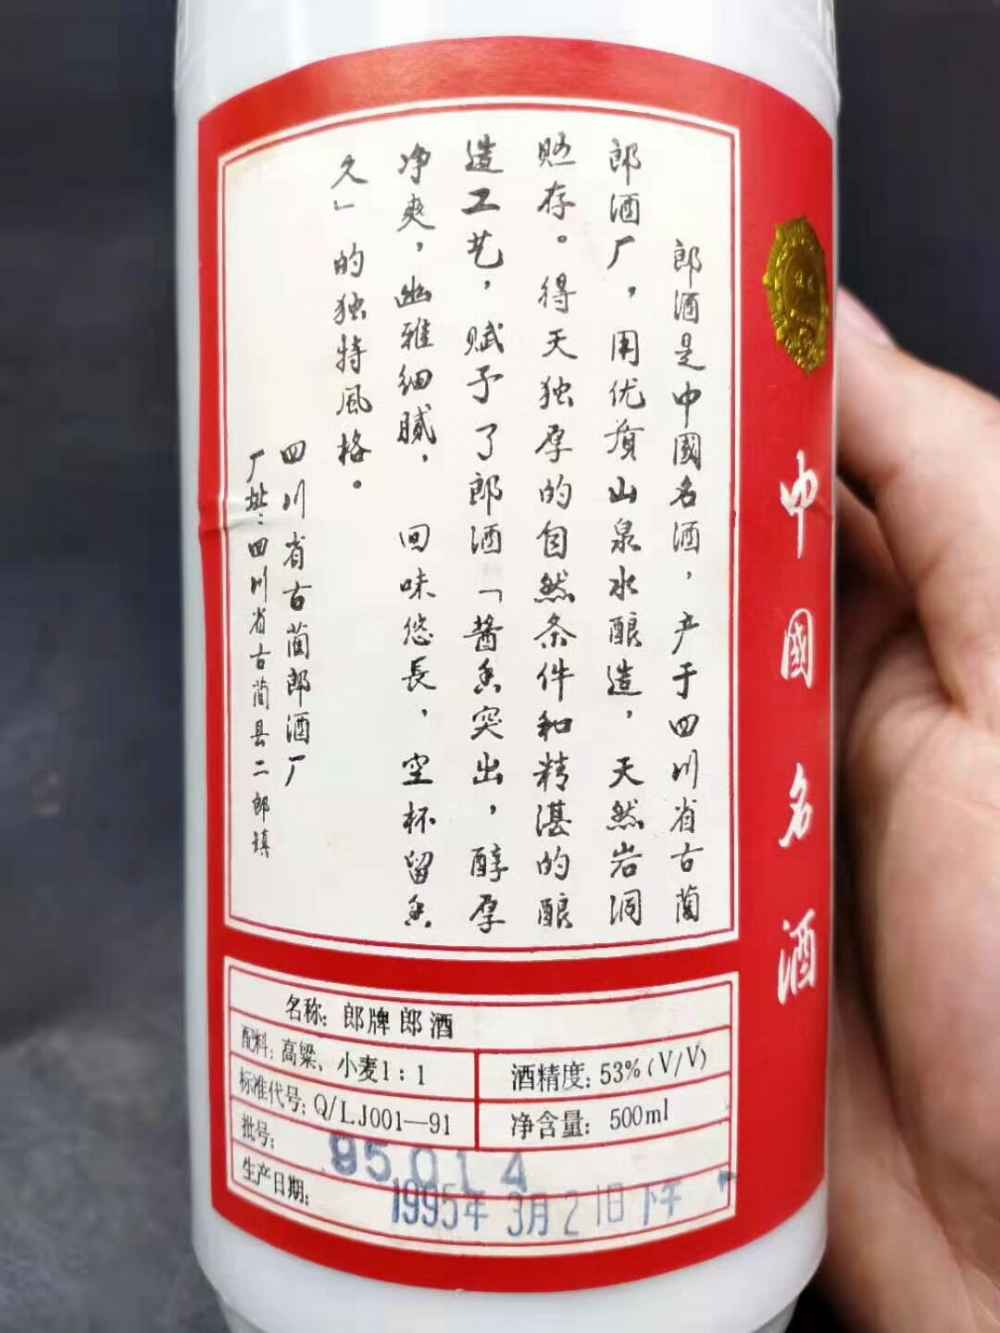 郎酒是中國名酒，产于四川省古蔺
郎酒厂，用优质山泉水酿造，天然岩洞
贮存。得天独厚的自然条件和精湛的酿
造工艺，赋予了郎酒「酱香突出，醇厚
净爽，幽雅细腻，回味悠長，空杯留香
久」的独特風格。
四川省古蔺郎酒厂
厂址：四川省古蔺县二郎镇
中國名酒
名称：郎牌郎酒
配料：高粱、小麦1：1
酒精度：53%(V/V)
标准代号：Q/LJ001—91
净含量：500ml
批号：95014
生产日期：1995年3月21日下午